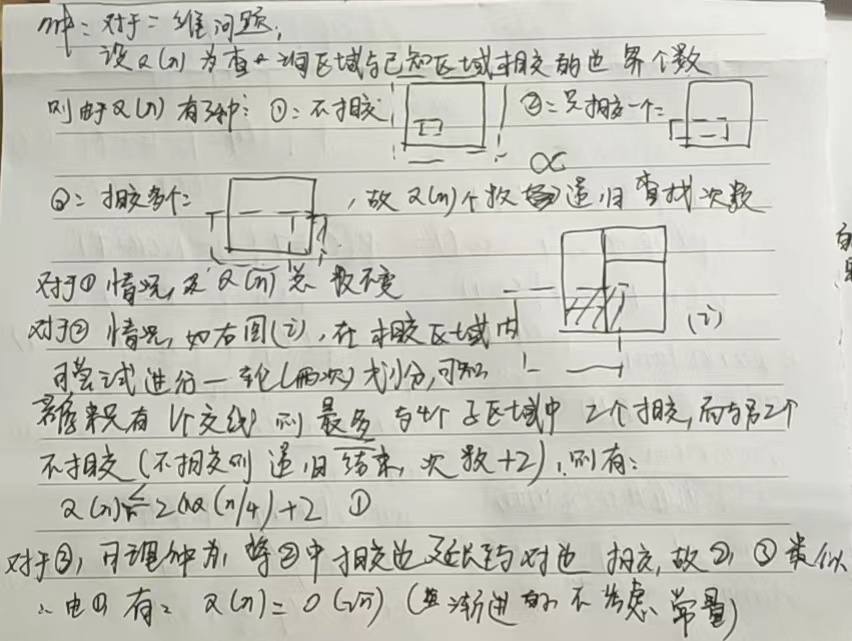 对于二维问题，
设 α(n) 为查询区域与已知区域相交的边界个数
则由于 α(n) 有3种: ①: 不相交 ②: 只相交一个:
③: 相交多个: ，故 α(n) 个数 ∝ 递归查找次数
对于① 情况, α(n) 总数不变
对于② 情况, 如右图(i), 在相交区域内 (i)
可尝试进行一轮(两次)划分,可知
若原来只有1个交线 则最多与4个子区域中2个相交,而与另2个
不相交(不相交则递归结束,次数+2),则有:
α(n) ≤ 2α(n/4)+2 ①
对于③, 可理解为, 将②中相交边延长至与对边相交,故②,③类似
∴由①有: α(n)=O(√n) (渐进的 不考虑常量)